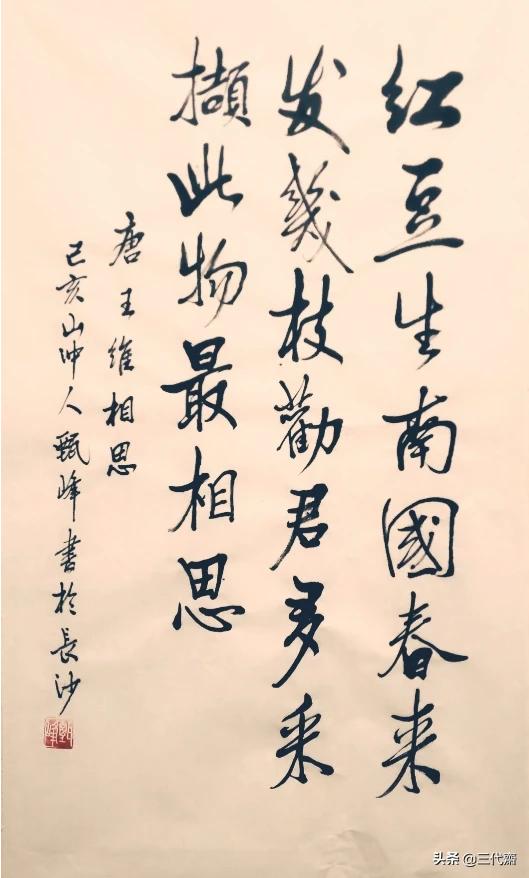 红豆生南國春来
发幾枝勸君多采
擷此物最相思
唐王维相思
己亥山冲人甄峰書於長沙
头条 @三代斋